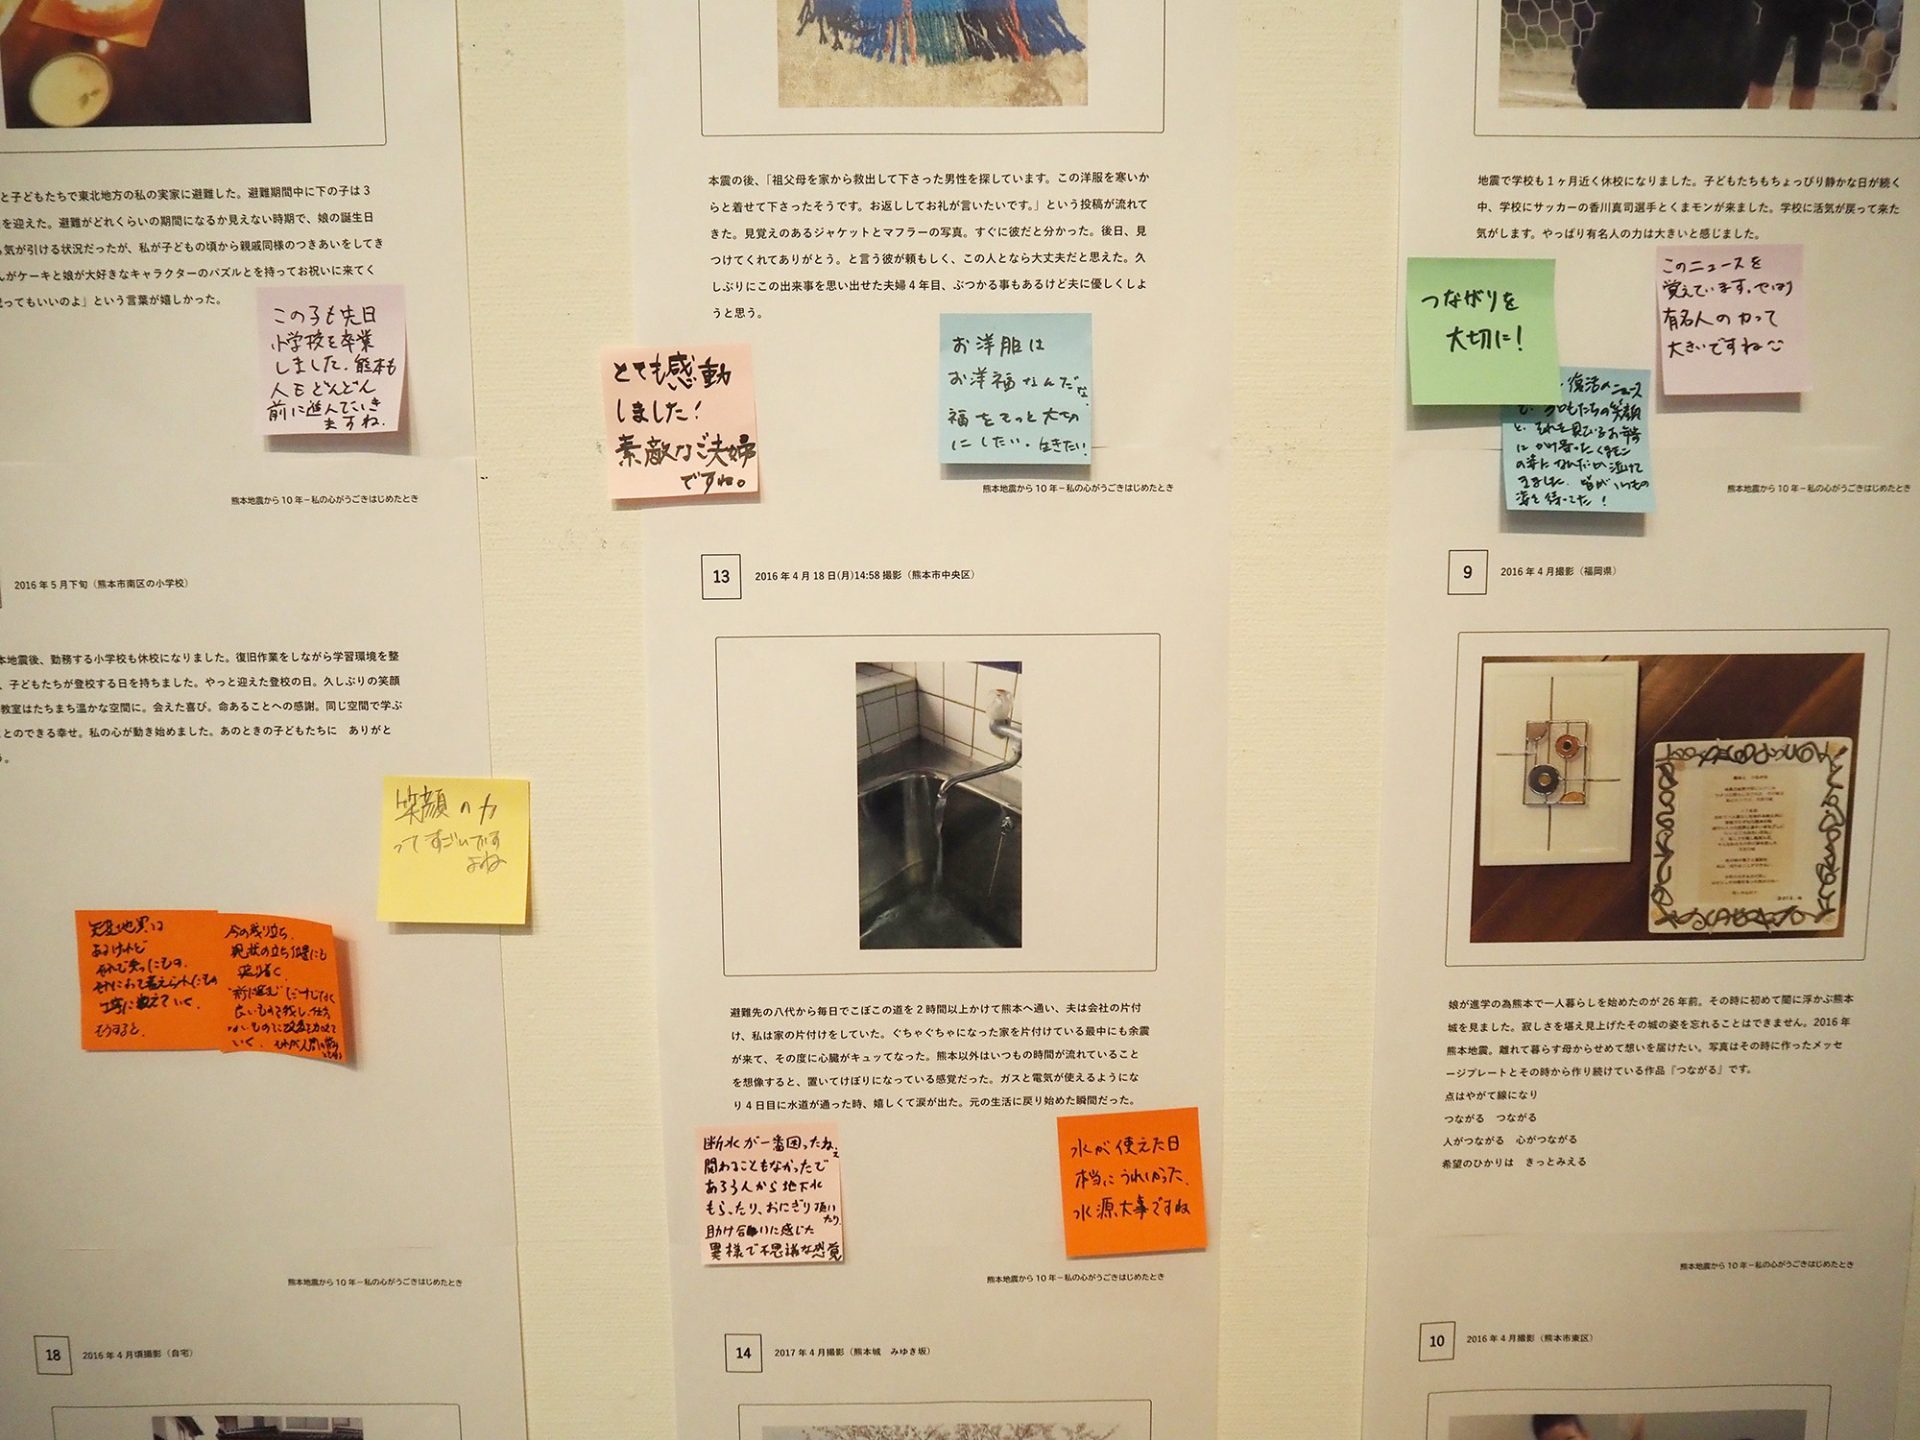 と子どもたちで東北地方の私の実家に避難した。避難期間中に下の子は3
を迎えた。避難がどれくらいの期間になるか見えない時期で、娘の誕生日
気が引ける状況だったが、私が子どもの頃から親戚同様のつきあいをしてき
んがケーキと娘が大好きなキャラクターのパズルとを持ってお祝いに来てく
ってもいいのよ」という言葉が嬉しかった。
この子も先日
小学校を卒業
しました。熊本も
人もどんどん
前に進んでいき
ますね。
熊本地震から10年−私の心がうごきはじめたとき
2016年5月下旬（熊本市南区の小学校）
本地震後、勤務する小学校も休校になりました。復旧作業をしながら学習環境を整
、子どもたちが登校する日を持ちました。やっと迎えた登校の日。久しぶりの笑顔
教室はたちまち温かな空間に。会えた喜び。命あることへの感謝。同じ空間で学ぶ
とのできる幸せ。私の心が動き始めました。あのときの子どもたちに　ありがと
。
笑顔の力
ってすごいです
よね
天変地異は
あるけれど
それで失ったもの。
そうすると、
今の成り立ち、
現状の立ち位置にも
熊本地震から10年−私の心がうごきはじめたとき
18
2016年4月頃撮影（自宅）
本震の後、「祖父母を家から救出して下さった男性を探しています。この洋服を寒いか
らと着せて下さったそうです。お返ししてお礼が言いたいです。」という投稿が流れて
きた。見覚えのあるジャケットとマフラーの写真。すぐに彼だと分かった。後日、見
つけてくれてありがとう。と言う彼が頼もしく、この人となら大丈夫だと思えた。久
しぶりにこの出来事を思い出せた夫婦4年目、ぶつかる事もあるけど夫に優しくしよ
うと思う。
とても感動
しました！
素敵なご夫婦
ですね。
お洋服は
お洋福なんだな、
福をもっと大切
にしたい。生きたい！
熊本地震から10年−私の心がうごきはじめたとき
13
2016年4月18日(月)14:58撮影（熊本市中央区）
避難先の八代から毎日でこぼこの道を2時間以上かけて熊本へ通い、夫は会社の片付
け、私は家の片付けをしていた。ぐちゃぐちゃになった家を片付けている最中にも余震
が来て、その度に心臓がキュッてなった。熊本以外はいつもの時間が流れていること
を想像すると、置いてけぼりになっている感覚だった。ガスと電気が使えるようにな
り4日目に水道が通った時、嬉しくて涙が出た。元の生活に戻り始めた瞬間だった。
断水が一番困ったねぇ
関わることもなかったで
あろう人から地下水
もらったり、おにぎり頂いたり、
助け合いに感じた
異様で不思議な感覚
水が使えた日
本当にうれしかった。
水源大事ですね
熊本地震から10年−私の心がうごきはじめたとき
14
2017年4月撮影（熊本城　みゆき坂）
地震で学校も1ヶ月近く休校になりました。子どもたちもちょっぴり静かな日が続く
中、学校にサッカーの香川真司選手とくまモンが来ました。学校に活気が戻って来た
気がします。やっぱり有名人の力は大きいと感じました。
つながりを
大切に！
このニュースを
覚えています。やはり
有名人の力って
大きいですね
復活のニュース
で、子どもたちの笑顔
と、それを見ているお年寄
にかけ寄ったくまモン
の姿になんだか泣けて
きました。皆がいつもの
姿を待ってた！
熊本地震から10年−私の心がうごきはじめたとき
9
2016年4月撮影（福岡県）
娘が進学の為熊本で一人暮らしを始めたのが26年前。その時に初めて闇に浮かぶ熊本
城を見ました。寂しさを堪え見上げたその城の姿を忘れることはできません。2016年
熊本地震。離れて暮らす母からせめて想いを届けたい。写真はその時に作ったメッセ
ージプレートとその時から作り続けている作品『つながる』です。
点はやがて線になり
つながる　つながる
人がつながる　心がつながる
希望のひかりは　きっとみえる
熊本地震から10年−私の心がうごきはじめたとき
10
2016年4月撮影（熊本市東区）